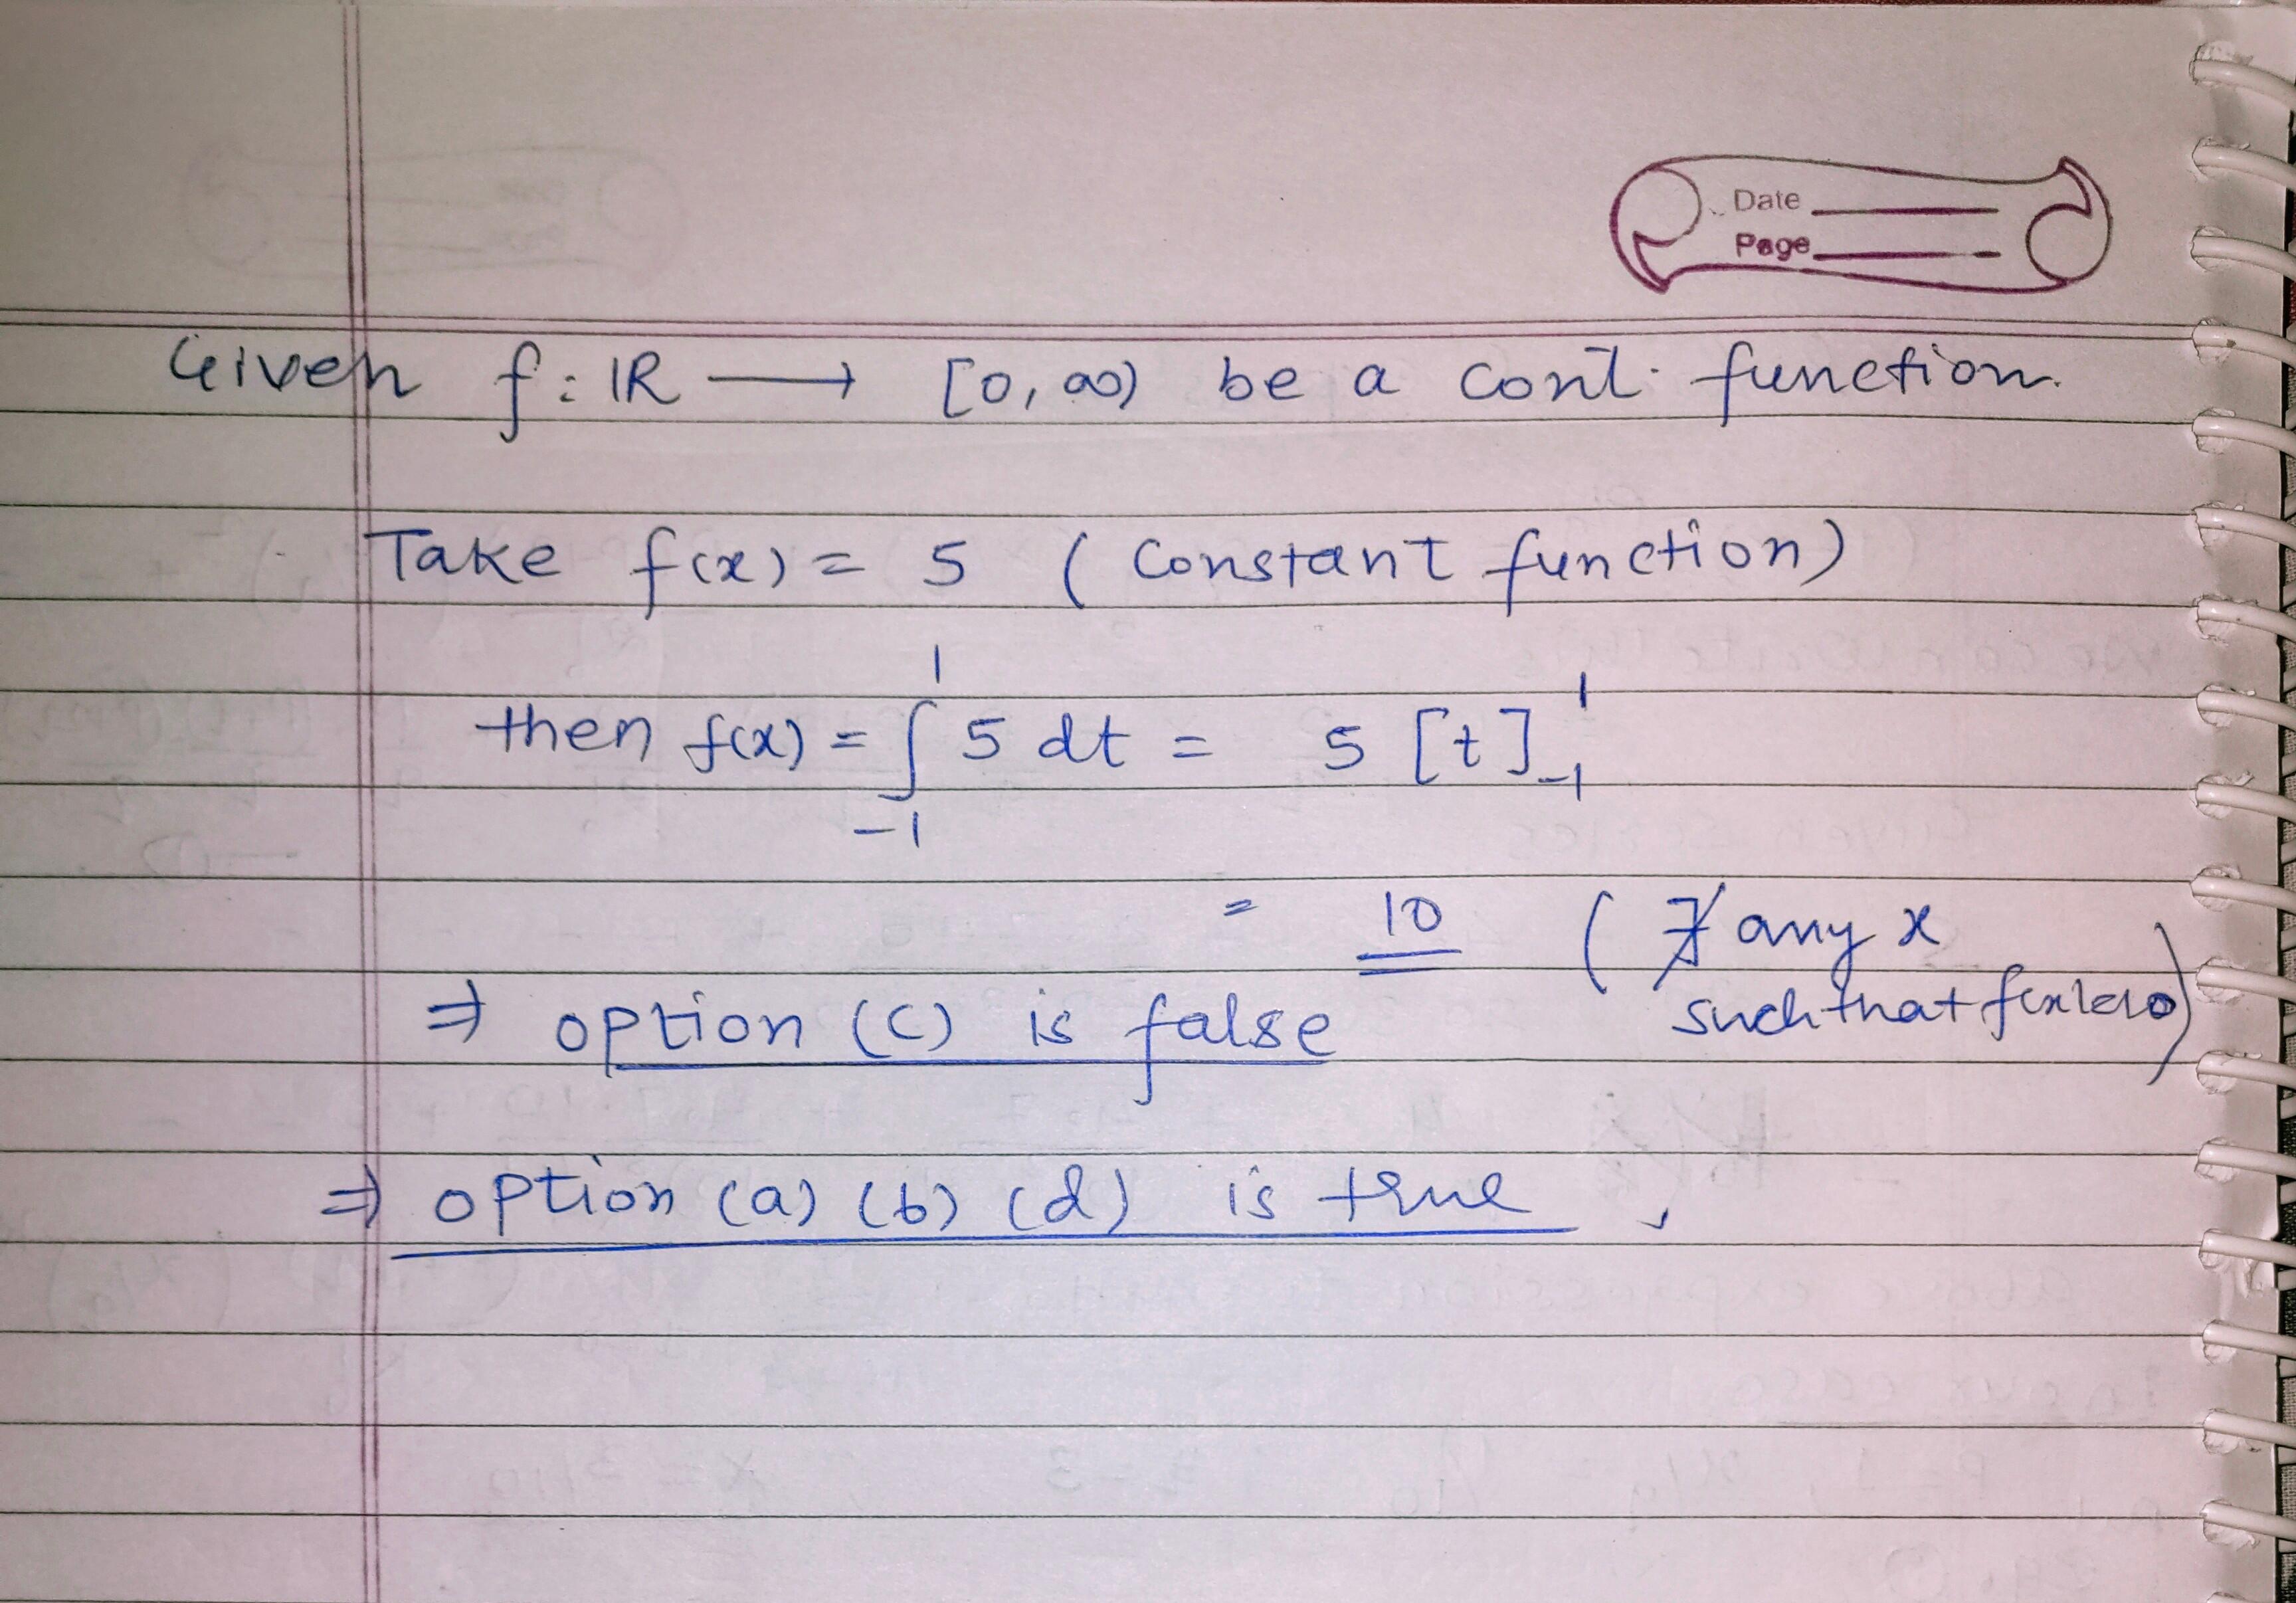 Date
Page
Given f : ℝ ⟶ [0, ∞) be a cont. function.
Take f(x) = 5 ( Constant function)
then f(x) = ∫₋₁¹ 5 dt = 5 [t]₋₁¹
= 10 ( ∄ any x
such that f(x)
⇒ option (c) is false
⇒ option (a) (b) (d) is true,